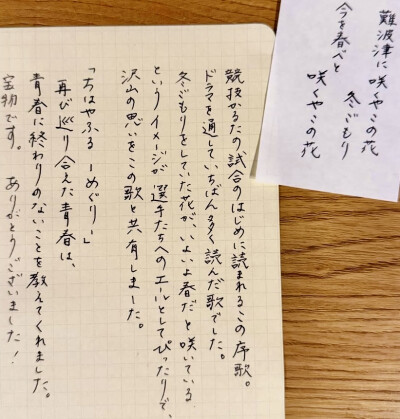 難波津に 咲くやこの花
冬ごもり
今を春べと
咲くやこの花
競技かるたの、試合のはじめに読まれるこの序歌。
ドラマを通していちばん多く読んだ歌でした。
冬ごもりをしていた花が、いよいよ春だと咲いている
というイメージが選手たちへのエールとしてぴったりで、
沢山の思いをこの歌と共有しました。
「ちはやふる ーめぐりー」
再び巡り合えた青春は、
青春に終わりのないことを教えてくれました。
宝物です。 ありがとうございました!